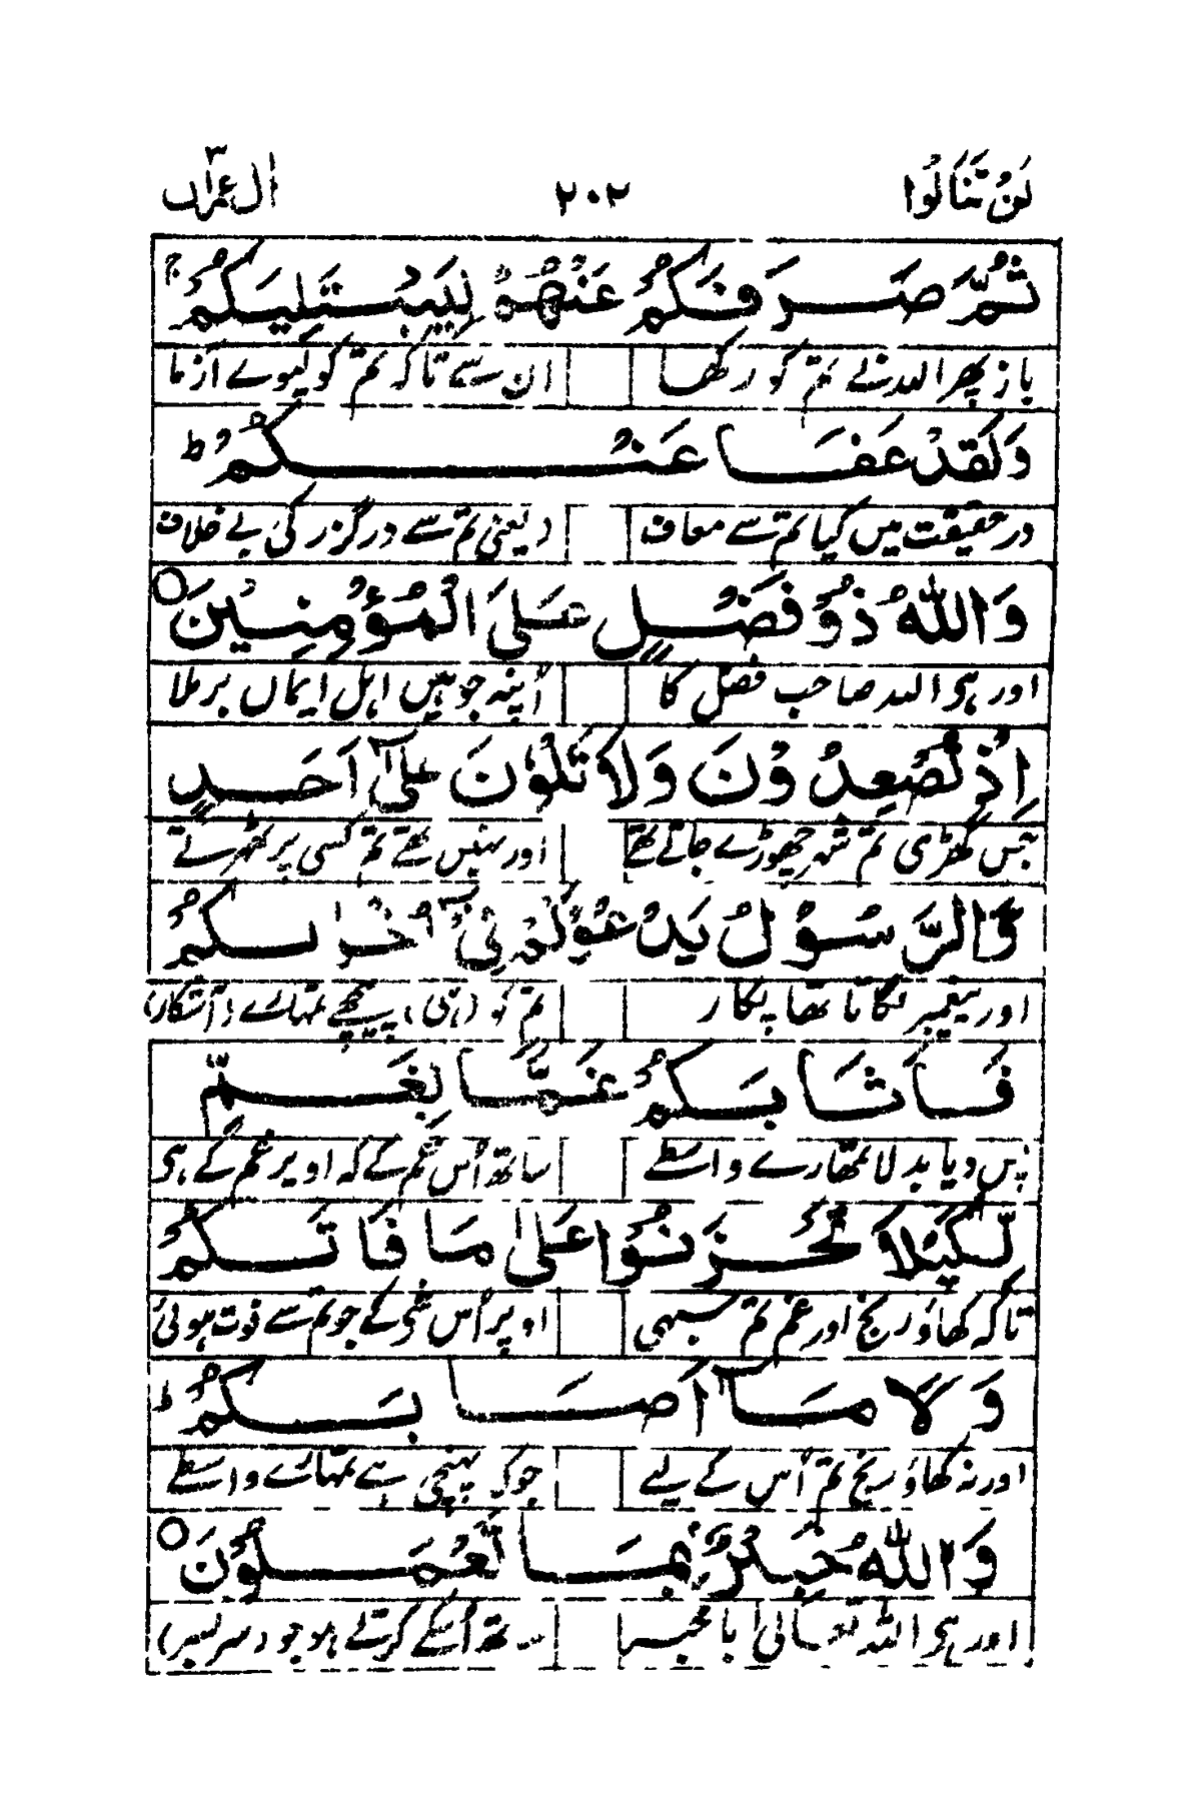 لَنْ تَنَالُوا ۲۰۲ اٰل عمرٰن ۳
ثُمَّ صَرَفَكُمْ عَنْهُمْ لِيَبْتَلِيَكُمْ ۚ
باز پھر اللہ نے تم کو رکھا ان سے تاکہ تم کو لیوے آزما
وَلَقَدْ عَفَا عَنْكُمْ ؕ
در حقیقت میں کیا تم سے معاف (یعنی تم سے درگزر کی بے خلاف
وَاللّٰهُ ذُوْ فَضْلٍ عَلَى الْمُؤْمِنِيْنَ ○
اور ہی اللہ صاحب فضل کا اُپنہ جو ہیں اہل ایماں برملا
اِذْ تُصْعِدُوْنَ وَلَا تَلْوٗنَ عَلٰٓى اَحَدٍ
جس گھڑی تم شہر چھوڑے جاتے تھے اور نہیں تھے تم کسی پر ٹھہرتے
وَّالرَّسُوْلُ يَدْعُوْكُمْ فِيْٓ اُخْرٰىكُمْ
اور پیغمبر لگاتا تھا پکار تم کو (ہی) پیچھے تمہارے (آشکار)
فَاَثَابَكُمْ غَمًّا بِغَمٍّ
پس دیا بدلا تمھارے واسطے ساتھ اُس غم کے کہ اوپر غم کے ہی
لِّكَيْلَا تَحْزَنُوْا عَلٰى مَا فَاتَكُمْ
تاکہ کھاؤ رنج اور غم تم نہیں اوپر اُس شی کے جو تم سے فوت ہوئی
وَلَا مَآ اَصَابَكُمْ ؕ
اور نہ کھاؤ رنج تم اُس کے لیے جو کہ پہنچی ہے تمہارے واسطے
وَاللّٰهُ خَبِيْرٌۢ بِمَا تَعْمَلُوْنَ ○
اور ہی اللہ تعالیٰ با خبر تھ اُسکے کرتے ہو جو (سر بسر)